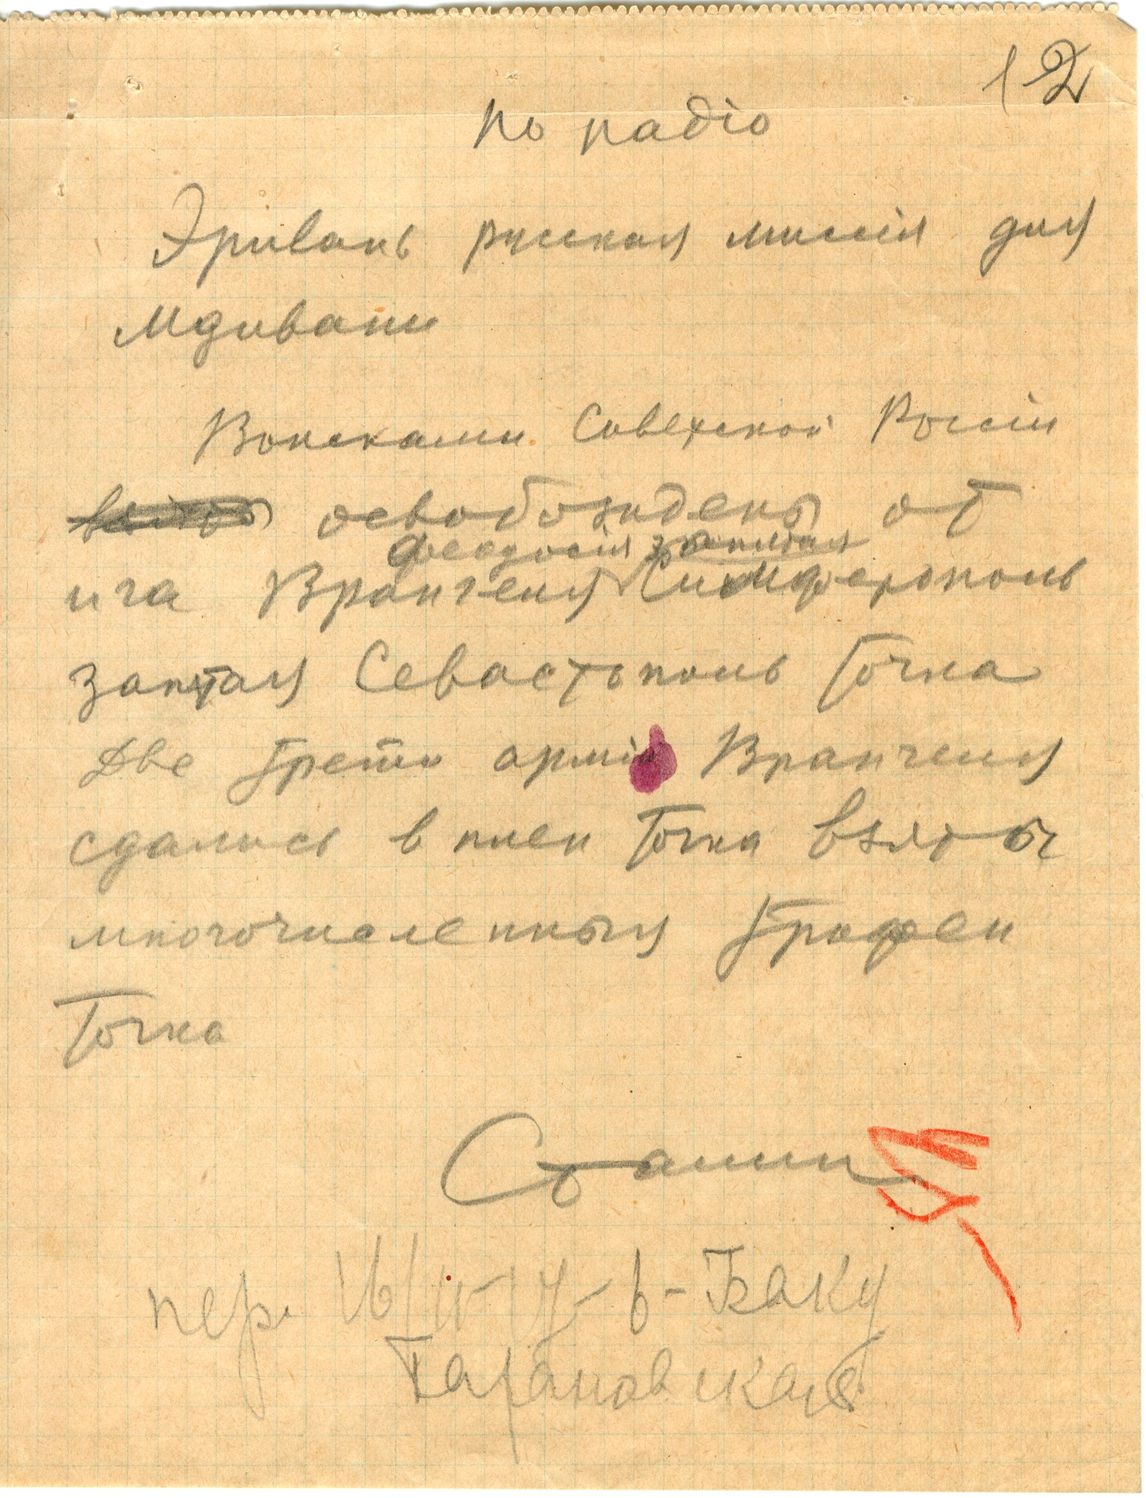 12
по радіо
Эривань русская миссія для
Мдивани
Войсками Советской Россіи
освобождены от
феодосія запятая
ига Врангеля Симферополь
запятая Севастополь Точка
Две трети арміи Врангеля
сдались в плен Точка взяты
многочисленныя трофеи
Точка
Сталин
пер. 16/11 в-Баку
Барановская